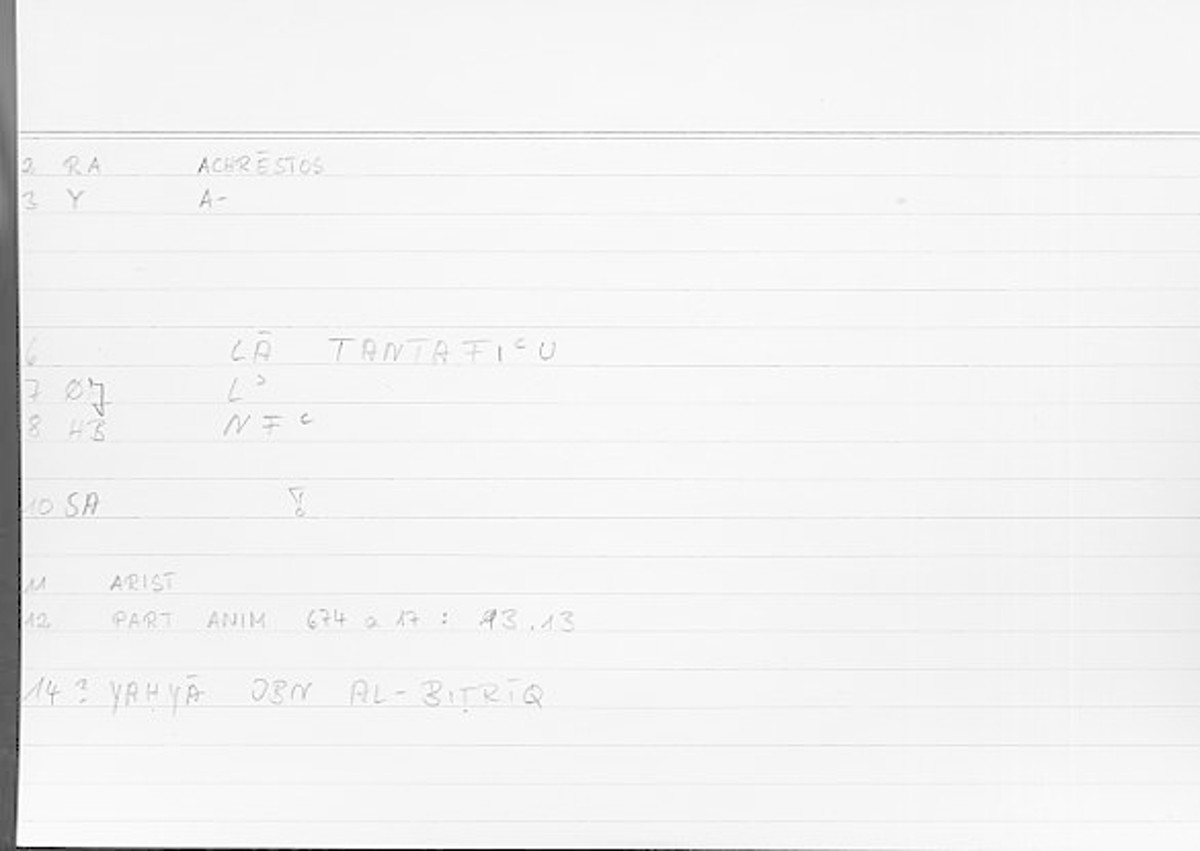 2 RA ACHRĒSTOS
3 Y A-
6 LĀ TANTAFIʿU
7 ØJ Lʾ
8 HB NFʿ
10 SA !
11 ARIST
12 PART ANIM 674 a 17 : 93.13
14 ? YAḤYĀ IBN AL-BIṬRĪQ